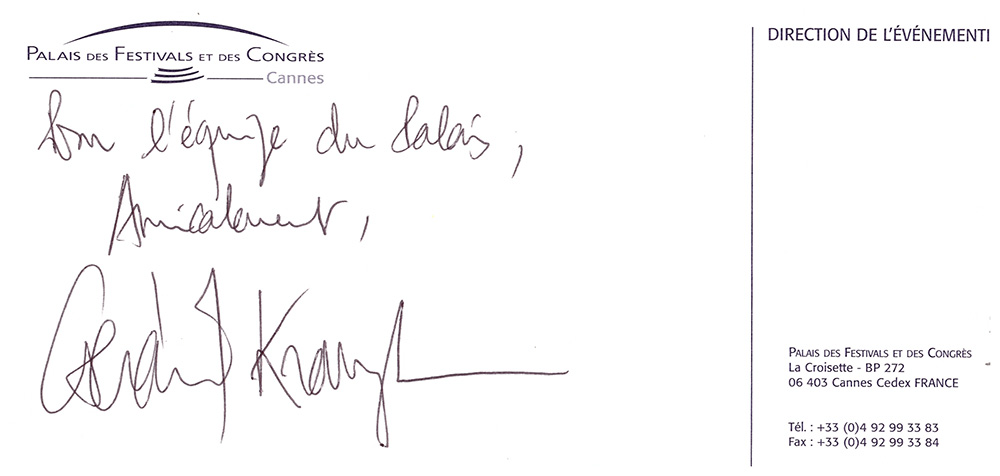 PALAIS DES FESTIVALS ET DES CONGRÈS
Cannes
Pour l'équipe du Palais,
Amicalement,
Gérard Krawczyk
DIRECTION DE L'ÉVÉNEMENTI
PALAIS DES FESTIVALS ET DES CONGRÈS
La Croisette - BP 272
06 403 Cannes Cedex FRANCE
Tél. : +33 (0)4 92 99 33 83
Fax : +33 (0)4 92 99 33 84